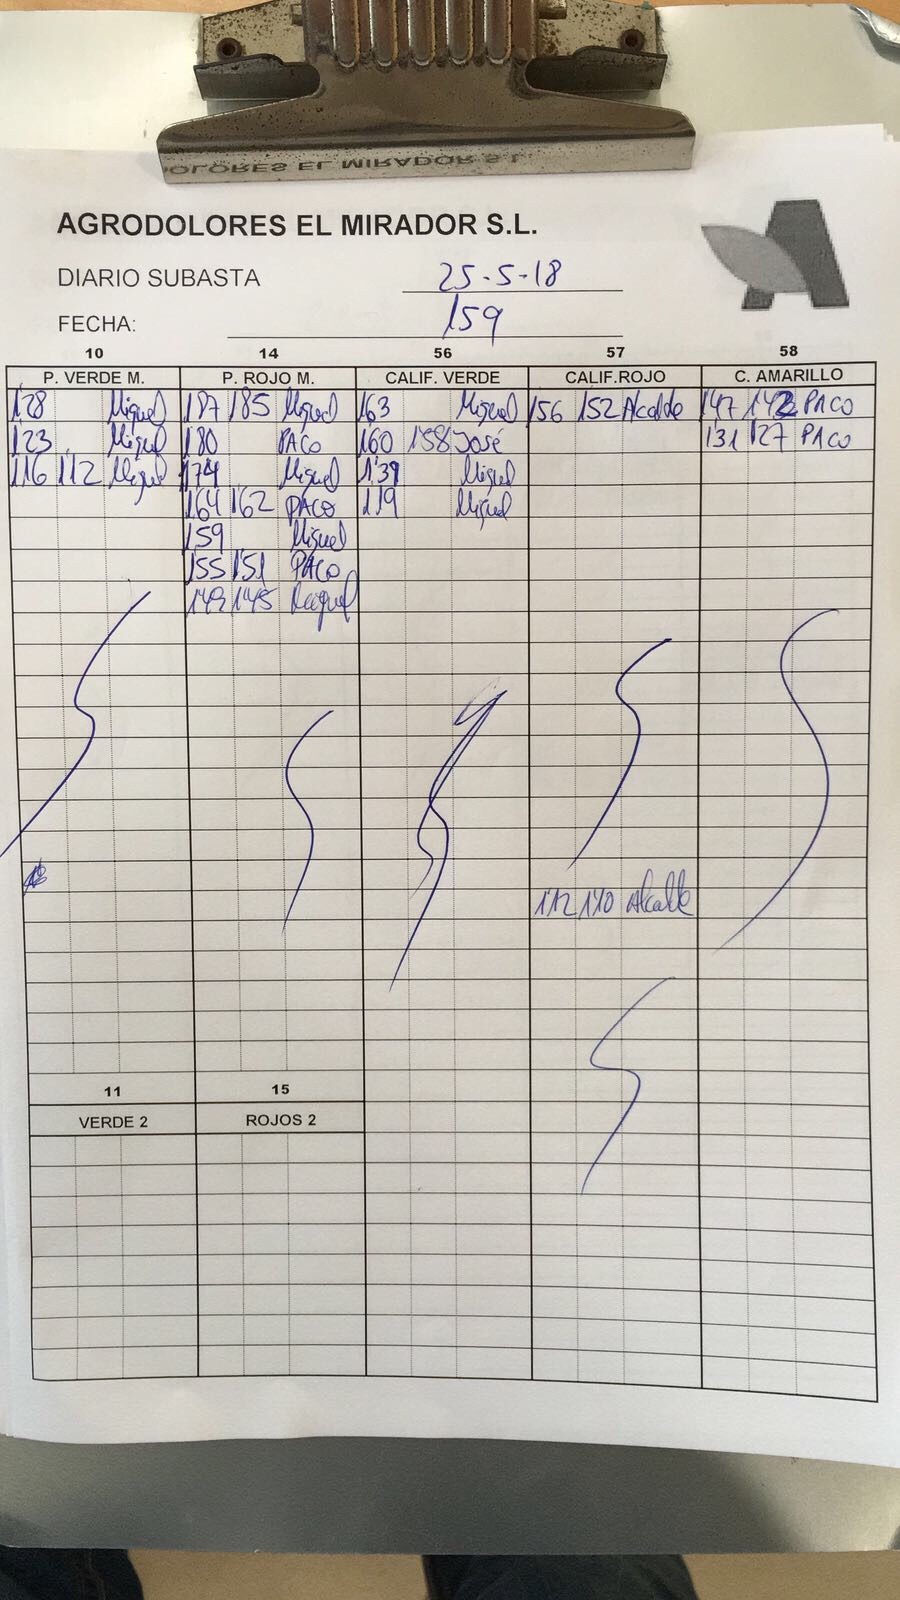 DOLORES EL MIRADOR S.L.
AGRODOLORES EL MIRADOR S.L.
DIARIO SUBASTA 25-5-18
FECHA: 159
10 14 56 57 58
P. VERDE M. P. ROJO M. CALIF. VERDE CALIF.ROJO C. AMARILLO
1'28 Miguel 1'87 1'85 Miguel 1'63 Miguel 1'56 1'52 Alcalde 1'47 1'42 PACO
1'23 Miguel 1'80 PACO 1'60 1'58 José 1'31 1'27 PACO
1'16 1'12 Miguel 1'74 Miguel 1'39 Miguel
1'64 1'62 PACO 1'19 Miguel
1'59 Miguel
1'55 1'51 PACO
1'49 1'45 Miguel
1'12 1'10 Alcalde
11 15
VERDE 2 ROJOS 2